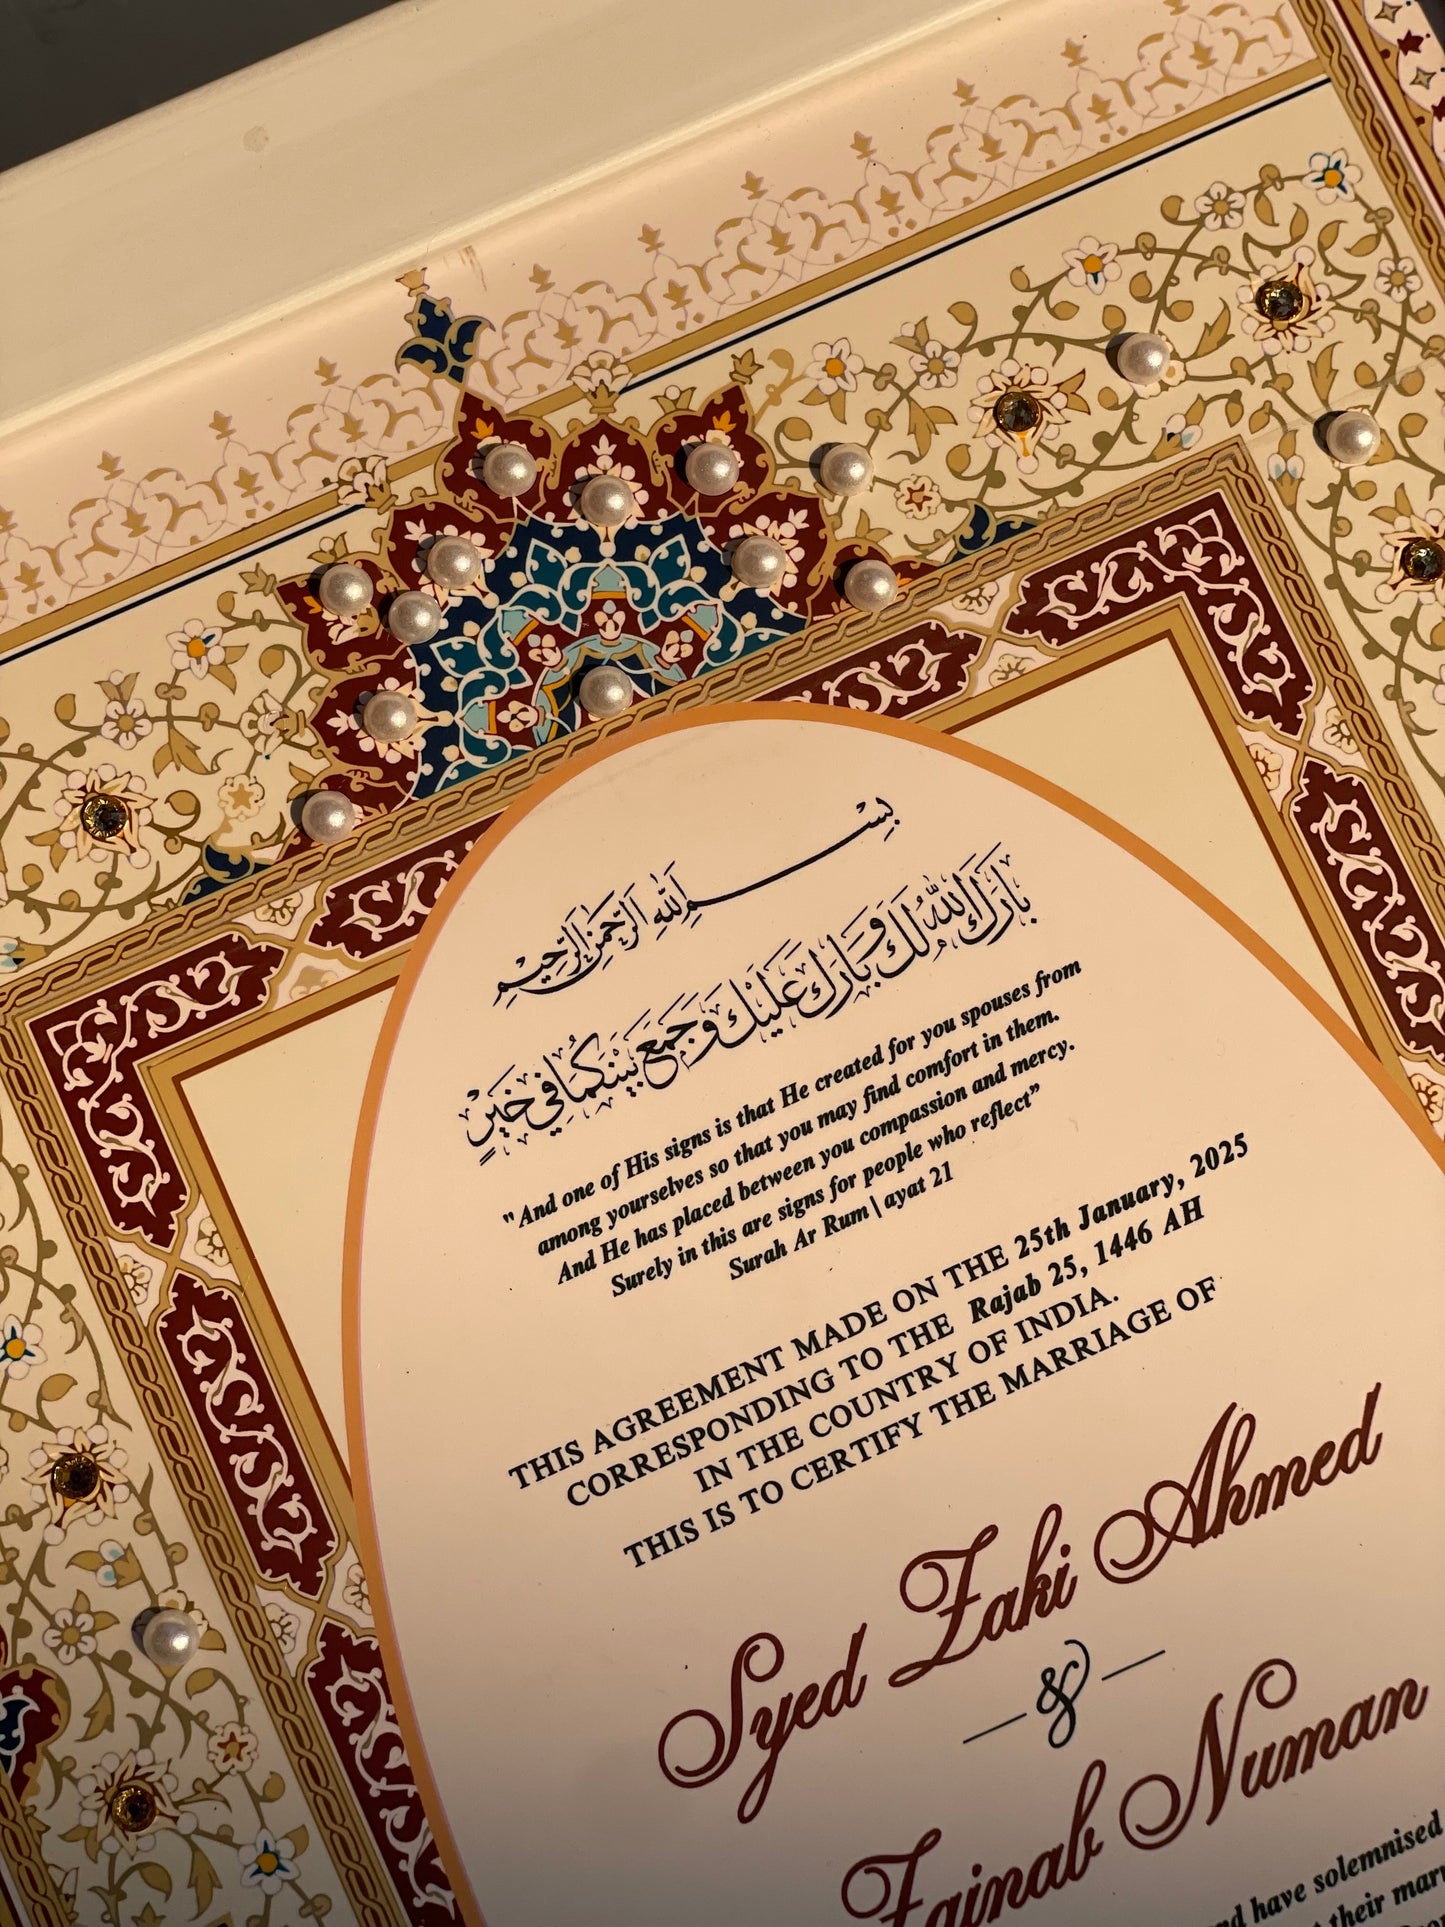 بِسْمِ اللهِ الرَّحْمٰنِ الرَّحِيْمِ
بَارَكَ اللهُ لَكَ وَبَارَكَ عَلَيْكَ وَجَمَعَ بَيْنَكُمَا فِي خَيْرٍ
"And one of His signs is that He created for you spouses from
among yourselves so that you may find comfort in them.
And He has placed between you compassion and mercy.
Surely in this are signs for people who reflect"
Surah Ar Rum | ayat 21
THIS AGREEMENT MADE ON THE 25th January, 2025
CORRESPONDING TO THE Rajab 25, 1446 AH
IN THE COUNTRY OF INDIA.
THIS IS TO CERTIFY THE MARRIAGE OF
Syed Zaki Ahmed
&
Zainab Numan
have solemnised
their